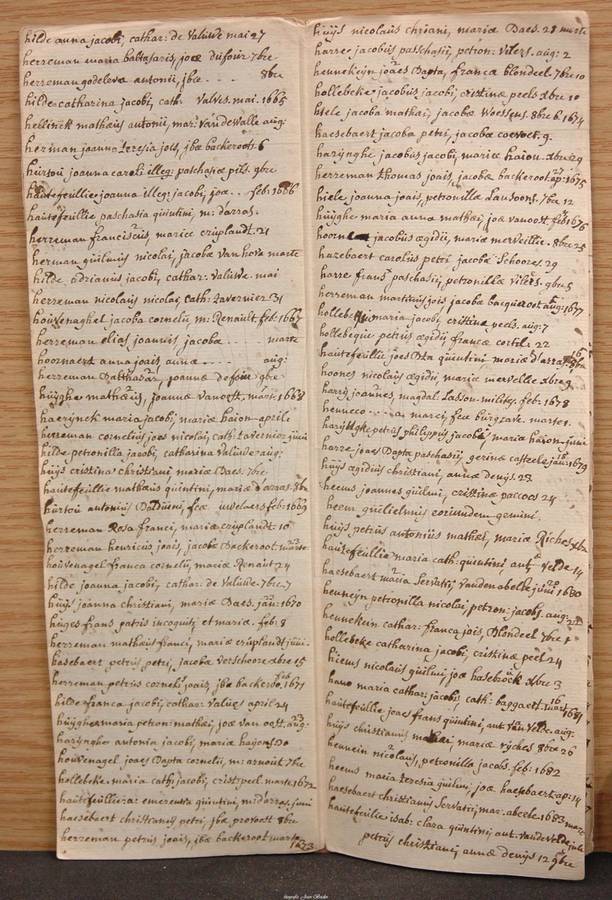 hilde anna jacobi, cathar: de Valuwe mai 27
herreman maria baltasaris, joæ dufour 7bre
herreman godeleva antonii, jbæ . . . . 8bre
hilde catharina jacobi, cath: Valwes. mai. 1665
hellinck mathæus antonii, mar: vandewalle aug:
herman joanna teresia jois, jbæ backeroots. 6
hurtou joanna caroli illeg: paschasiæ pils. 9bre
hautefeuillie joanna illeg: jacobi, joæ . . feb: 1666
hautefeuillie paschasia quintini, m: d'arras.
herreman franciscus, mariæ cruplandt. 21
herman guilmus nicolai, jacobæ van hove marte
hilde, adrianus jacobi, cathar: Valuwe. mai
herreman nicolaus nicolai, cath: tavernier. 31
houvenaghel jacoba cornelii, m: Renault feb: 1667
herreman elias joannis jacoba . . . . marte
hoornaert anna joais, anna . . . . aug:
herreman Balthasar, joannæ defour 9bre
huyghe mathæus, joannæ vanoost. marti. 1668
haerynck maria jacobi, mariæ haion. aprili
herreman cornelius joes nicolai, cath: tavernier junii
hilde petronilla jacobi, catharina Valuwe. aug:
huijs cristina christiani mariæ Baes. 7bre.
hautefeuillie mathæus quintini, mariæ d'arras. 8b
hurtou antonius Balduini, fcæ uwelaers feb: 1669
herreman Rosa franci, mariæ cruplandt. 10
herreman henricus joais, jacobæ Backeroot. marte
houvenagel franca cornelii, mariæ Renaut. 24
hilde joanna jacobi, cathar: de Valuwe. 7bre. 7
huijs joanna christiani, mariæ Baes. jan: 1670
hayes frans patris incogniti et mariæ. feb: 8
herreman mathæus franci, mariæ cruplandt junii.
hasebaert petrus petri, jacobæ verschoore xbre 15
herreman petrus cornelii joais, jbæ backero. feb 1671
hilde franca jacobi, cathar: Valuwe april 24
huyghe maria petron: mathæi, joæ van oost. aug: 23
harijnghe antonia jacobi, mariæ hayons. 30
houvenagel joaes Bapta cornelii, m: arnout 7bre
hollebeke maria cath: jacobi, crist: peel marte. 1672
hautefeuillie: a: emerentia quintini, m: d'arras. junii
haesebaert christianus petri, jbæ provoost 8bre
herreman petrus joais, jbæ backeroot marte 1673
huijs nicolaus chriani, mariæ Baes. 28 marte
harre jacobus paschasii, petron: vilers. aug: 2
hennekeijn joaes Bapta, franca blondeel 7bre 10
hollebeke jacobus jacobi, cristinæ peels xbre 10
hiele jacoba mathæi, jacobæ Woestens. 8bre 6. 1674
haesebaert jacoba petri, jacobæ coevoet. 9.
harijnghe jacobus jacobi, mariæ haion. xbre 29
herreman thomas joais, jacobæ backeroot ap: 1675
hiele joanna joais, petronillæ Lausoons. 7bre 12
huijghe maria anna mathæi, joæ vanoost feb 1676
hoorn jacobus ægidii, mariæ merveillie. 8bre 25
hazebaert carolus petri jacobæ Schoores. 29
harre frans paschasii, petronillæ vilers. 9bre 5
herreman martinus jois, jacobæ bacqueroot aug: 1677
hollebeke maria jacobi, cristina peels. aug: 7
hollebeque petrus ægidii francæ cortil. 22
hautefeuillie joes Bta quintini mariæ d'arras
hoones nicolaus ægidii, mariæ mervellie xbre 9
harrij joannes, magdal. Lasson. militis. feb: 1678
henneco . . . . . a: marci, fcæ burgrave. marte 1.
harijttghe petrus philippus jacobi, mariæ haion. junii
harre joaes Bapta paschasii, gerinæ casteele jan: 1679
huijs ægidius christiani, annæ denijs. 23
heems joannes guilmi, cristinæ pacoos 24
heem guilielmus eorundem gemini.
huijs petrus antonius mathæi, mariæ Riches xbre
hautefeuillie maria cath: quintini ant: Velde. 14
haesebaert maria Servatii, vandenabelle junii 1680
heuneijn petronilla nicolai, petron: jacobs. aug: 22
hennekein cathar: franca jois, Blondeel 7bre 1
hollebeke catharina jacobi, cristinæ peel 24
hiems nicolaus guilmi joæ hasebrock xbre 3
havo maria cathar: jacobi, cath: bapgaett. 16 mart 1681
hautefeuillie joaes frans quintini, ant. van Velde. aug:
huijs christianus mathæi, mariæ ryckes 8bre 26
heunein nicolaus, petronilla jacobs. feb: 1682
heems maria teresia guilmi, joæ haesebaert ap: 14
haesebaert christianus Servatii, mar: abeele. 1683 marte
hautefeuillie isab: clara quintini, ant. vandevelde. julii
petrus christiani, annæ denijs 12 9bre